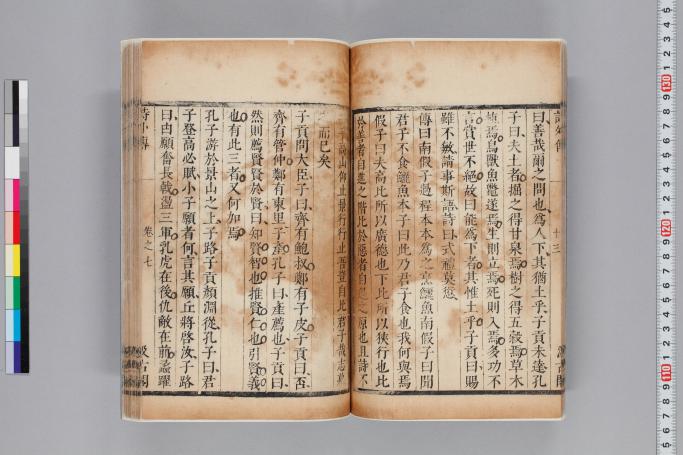 曰善哉爾之問也爲人下其猶土乎子貢未達孔
子曰夫土者掘之得甘泉焉樹之得五穀焉草木
植焉鳥獸魚鼈遂焉生則立焉死則入焉多功不
言賞世不絕故曰能爲下者其惟土乎子貢曰賜
雖不敏請事斯語詩曰式禮莫愆
傳曰南假子過程本本爲之烹鱺魚南假子曰聞
君子不食鱺魚本子曰此乃君子食也我何與焉
假子曰夫高比所以廣德也下比所以狹行也比
於善者自進之階比於惡者自退之原也且詩不
高山仰止景行行止吾豈自比君子哉志慕
而已矣
子貢問大臣子曰齊有鮑叔鄭有子皮子貢曰否
齊有管仲鄭有東里子產孔子曰產薦也子貢曰
然則薦賢賢於賢曰知賢智也推賢仁也引賢義
也有此三者又何加焉
孔子游於景山之上子路子貢顏淵從孔子曰君
子登高必賦小子願者何言其願丘將啓汝子路
曰由願奮長戟盪三軍乳虎在後仇敵在前蠡躍
卷之七
汲古閣